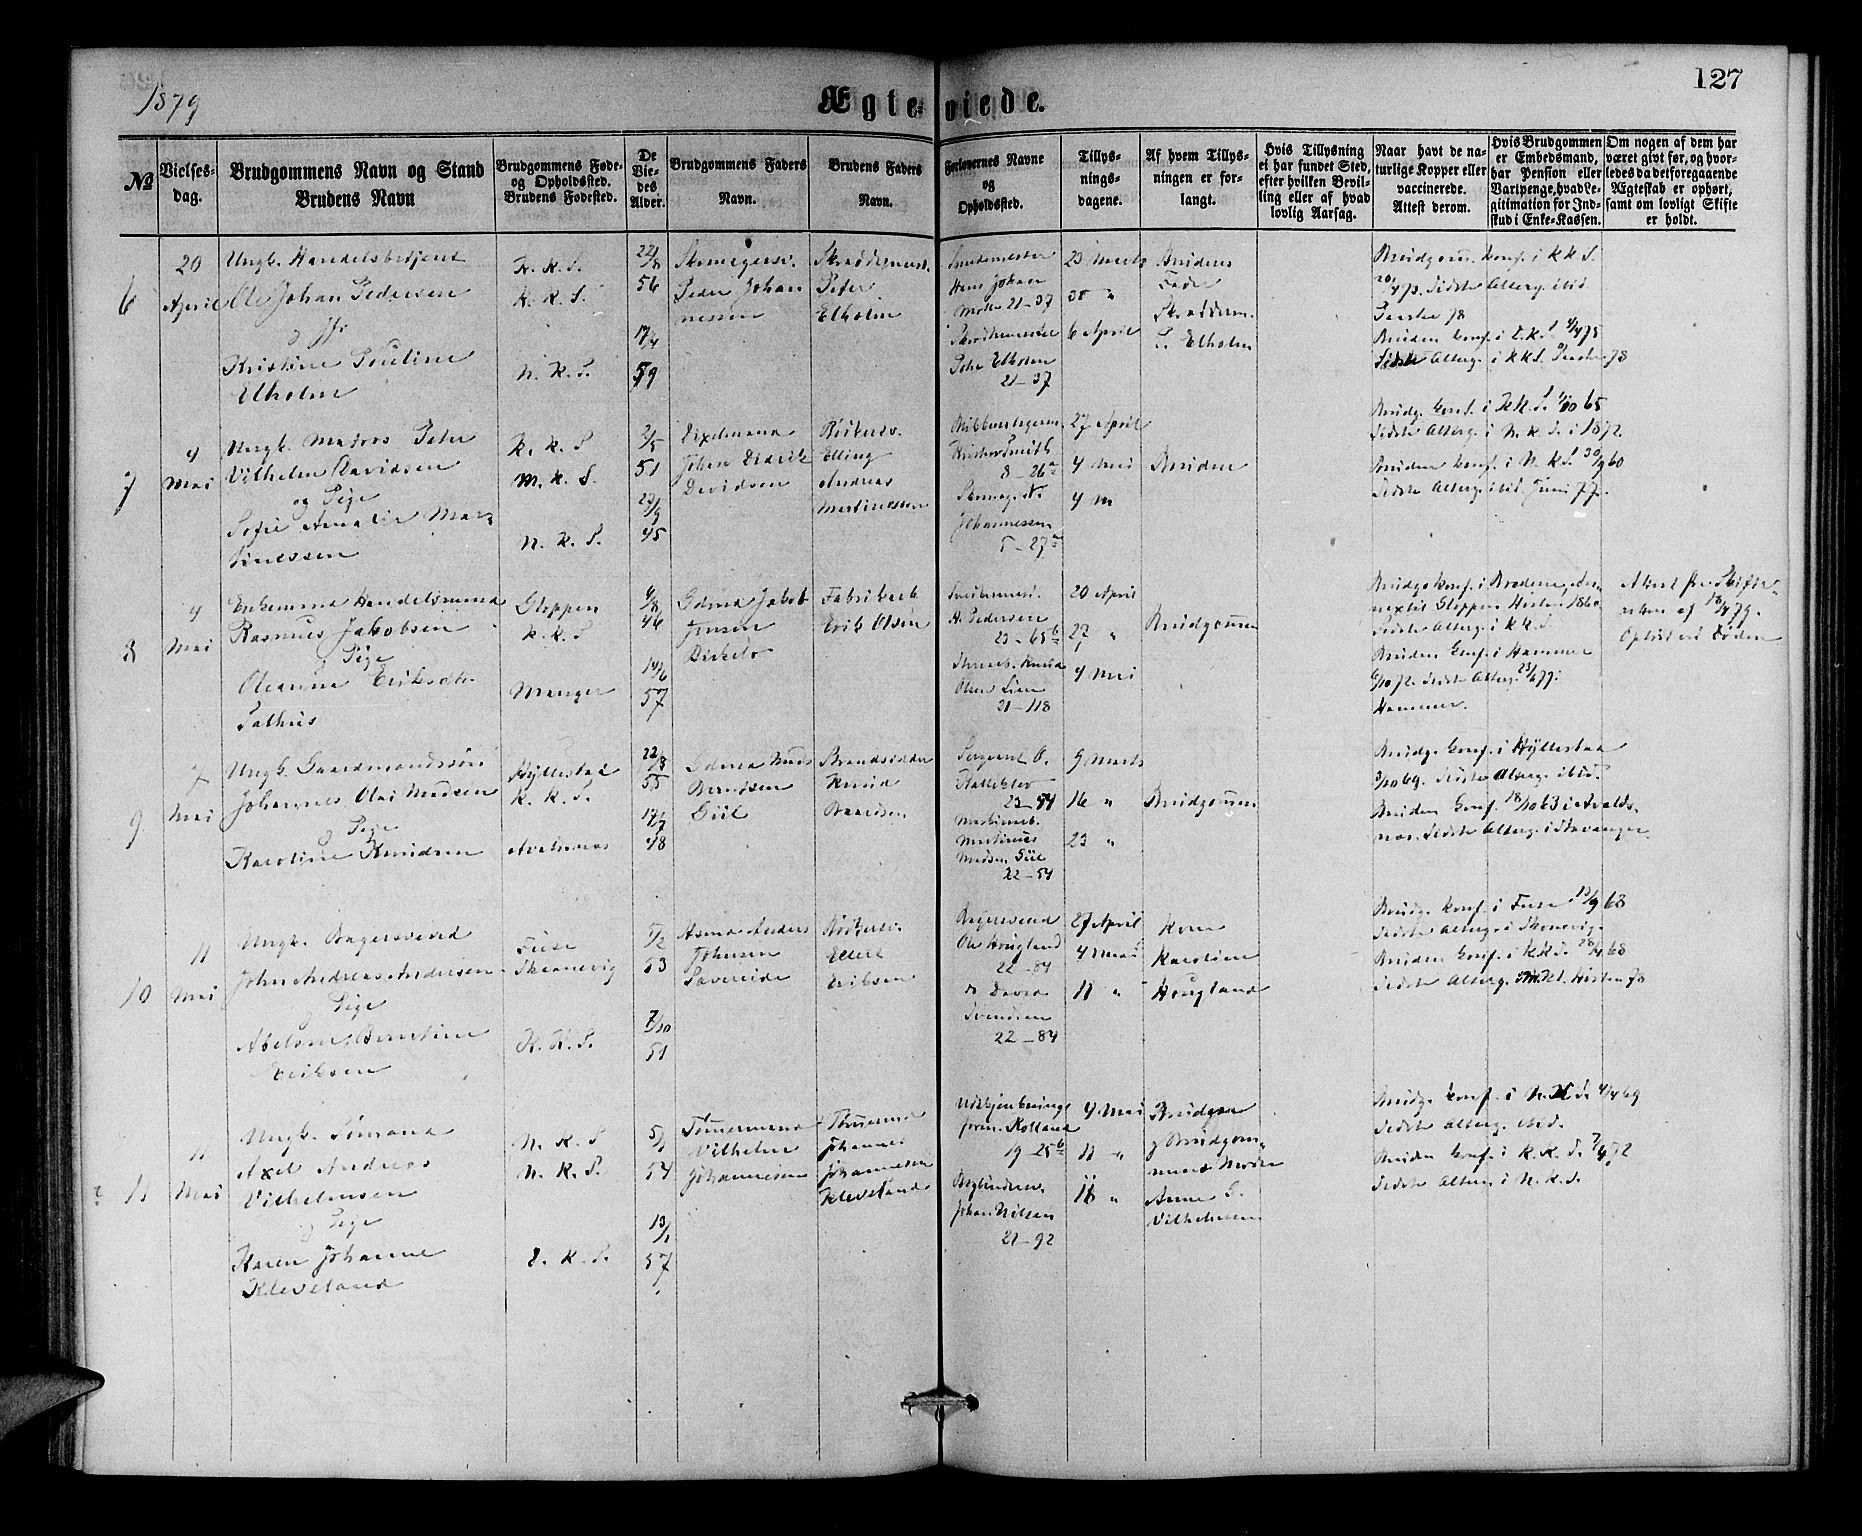 1879
Ægteviede.
127
№
Vielses-
dag.
Brudgommens Navn og Stand
Brudens Navn
Brudgommens Føde-
og Opholdssted.
Brudens Fødested.
De
Vie-
des
Alder.
Brudgommens Faders
Navn.
Brudens Faders
Navn.
Forlovernes Navne
og
Opholdssted.
Tillys-
nings-
dagene.
Af hvem Tillys-
ningen er for-
langt.
Hvis Tillysning
ei har fundet Sted,
efter hvilken Bevil-
ling eller af hvad
lovlig Aarsag.
Naar havt de na-
turlige Kopper eller
vaccinerede.
Attest derom.
Hvis Brudgommen
er Embedsmand,
har Pension eller
Vartpenge, hvad Le-
gitimation for Ind-
skud i Enke-Kassen.
Om nogen af dem har
været gift før, og hvor-
ledes da det foregaaende
Ægteskab er ophørt,
samt om lovligt Skifte
er holdt.
6
20
April
Ungk. Handelsbetjent
Ole Johan Pedersen
Kristine Pouline
Elholm
K. K. S.
K. K. S.
N. K. S.
22/8
56
17/4
59
Peder Johan
nessen
Peter
Elholm
Hans Johan
21-37
Peter Elholm
21-37
23 Marts
30 "
6 April
Brudens
Fader
Skrædderm.
P. Elholm
Brudgom. konf. i K K S.
20/4 73. Sidste Alterg. ibid
Paaske 78
Bruden konf. i D. K. S. 4/4 75
Sidste Alterg. i K K S. Paaske 78
7
4
Mai
Ungk. Peter
Vilhelm Davidsen
og Pige
Sofie Amalie Mar-
tinessen
K. K. S
M. K. S.
N. K. S.
2/5
51
23/9
45
Johan Didrik
Davidsen
Elling
Andreas
Martinessen
Smith
8-26a
Johannessen
5-27a
27 April
4 Mai
4 M
Bruden
Brudg. konf. i K K. S. 1/10 65
Sidste Alterg. i N. K. S. i 1872.
Bruden konf. i N. K S. 30/9 60
Sidste Alterg. ibid. Juni 77.
8
4
Mai
Enkemand Handelsmand
Rasmus Jakobsen
Pige
Oleanna Eriksdtr.
Sathus
Gloppen
K. K. S
Manger
4/8
46
14/6
57
Gdmd Jakob
Jensen
Birkelo
Fabrikarb
Erik Olsen
H. Pedersen
23-65b
Olsen Lien
21-118
20 April
27 "
4 Mai
Brudgommen
Brudg. konf. i Bredene, An-
nextil Gloppen. Høsten 1860
Sidste Alterg. i K K S.
Bruden konf. i Hammer
6/10 72. Sidste Alterg. 23/4 77.
Hammer.
Attest fra Skifte-
retten af 18/4 79.
Opløst ved Døden
9
7
Mai
Ungk. Gaardmandssøn
Johannes Olai Madsen
og Pige
Karoline Knudsen
Hyllestad
K. K. S.
Avalsnes
22/8
55
17/7
48
Gdmd Mads
Berentsen
Giil
Knud
Sergeant O.
23-54
Martinus
Madsen Giil
22-54
9 Marts
16 "
23 "
Brudgommen
Brudg. konf. i Hyllestad
3/10 69. Sidste Alterg. ibid.
Bruden konf. 18/10 63 i Avalds-
næs. Sidste Alterg. i Stavanger.
10
11
Mai
Ungk. Bagersvend
John Andreas Andersen
Pige
Abelone Berntine
Eriksen
Fuse
Skaanevig
K. K. S.
5/2
53
7/10
51
Anders
Johnsen
Sævereide
Ellert
Eriksen
Bagersvend
Ole Hougland
22-84
do David
Svendsen
22-84
27 April
4 Mai
11 "
Kone
Karoline
Hougland
Brudg. konf. i Fuse 13/9 68
Sidste Alterg. i Skonevig.
Bruden konf. i K K. S. 28/4 68
Sidste Alterg. Høsten 78
11
11
Mai
Ungk. Sømand
Axel Andreas
Vilhelmsen
og Pige
Karen Johanne
Kleveland
N. K. S
N. K. S.
D. K. S.
5/1
54
13/1
57
Tømmermand
Vilhelm
Johannesen
Tømmermd
Johannes
Johannesen
Kleveland
Kolland
19-25b
Johan Nilsen
21-92
4 Mai
11 "
18 "
Brudgom
og Brudgom-
mens Moder
Anne G.
Vilhelmsen
Brudg. konf. i N. K. S. 4/4 69
Sidste Alterg. ibid.
Bruden konf. i K. K. S. 7/4 72
Sidste Alterg. i N. K. S.